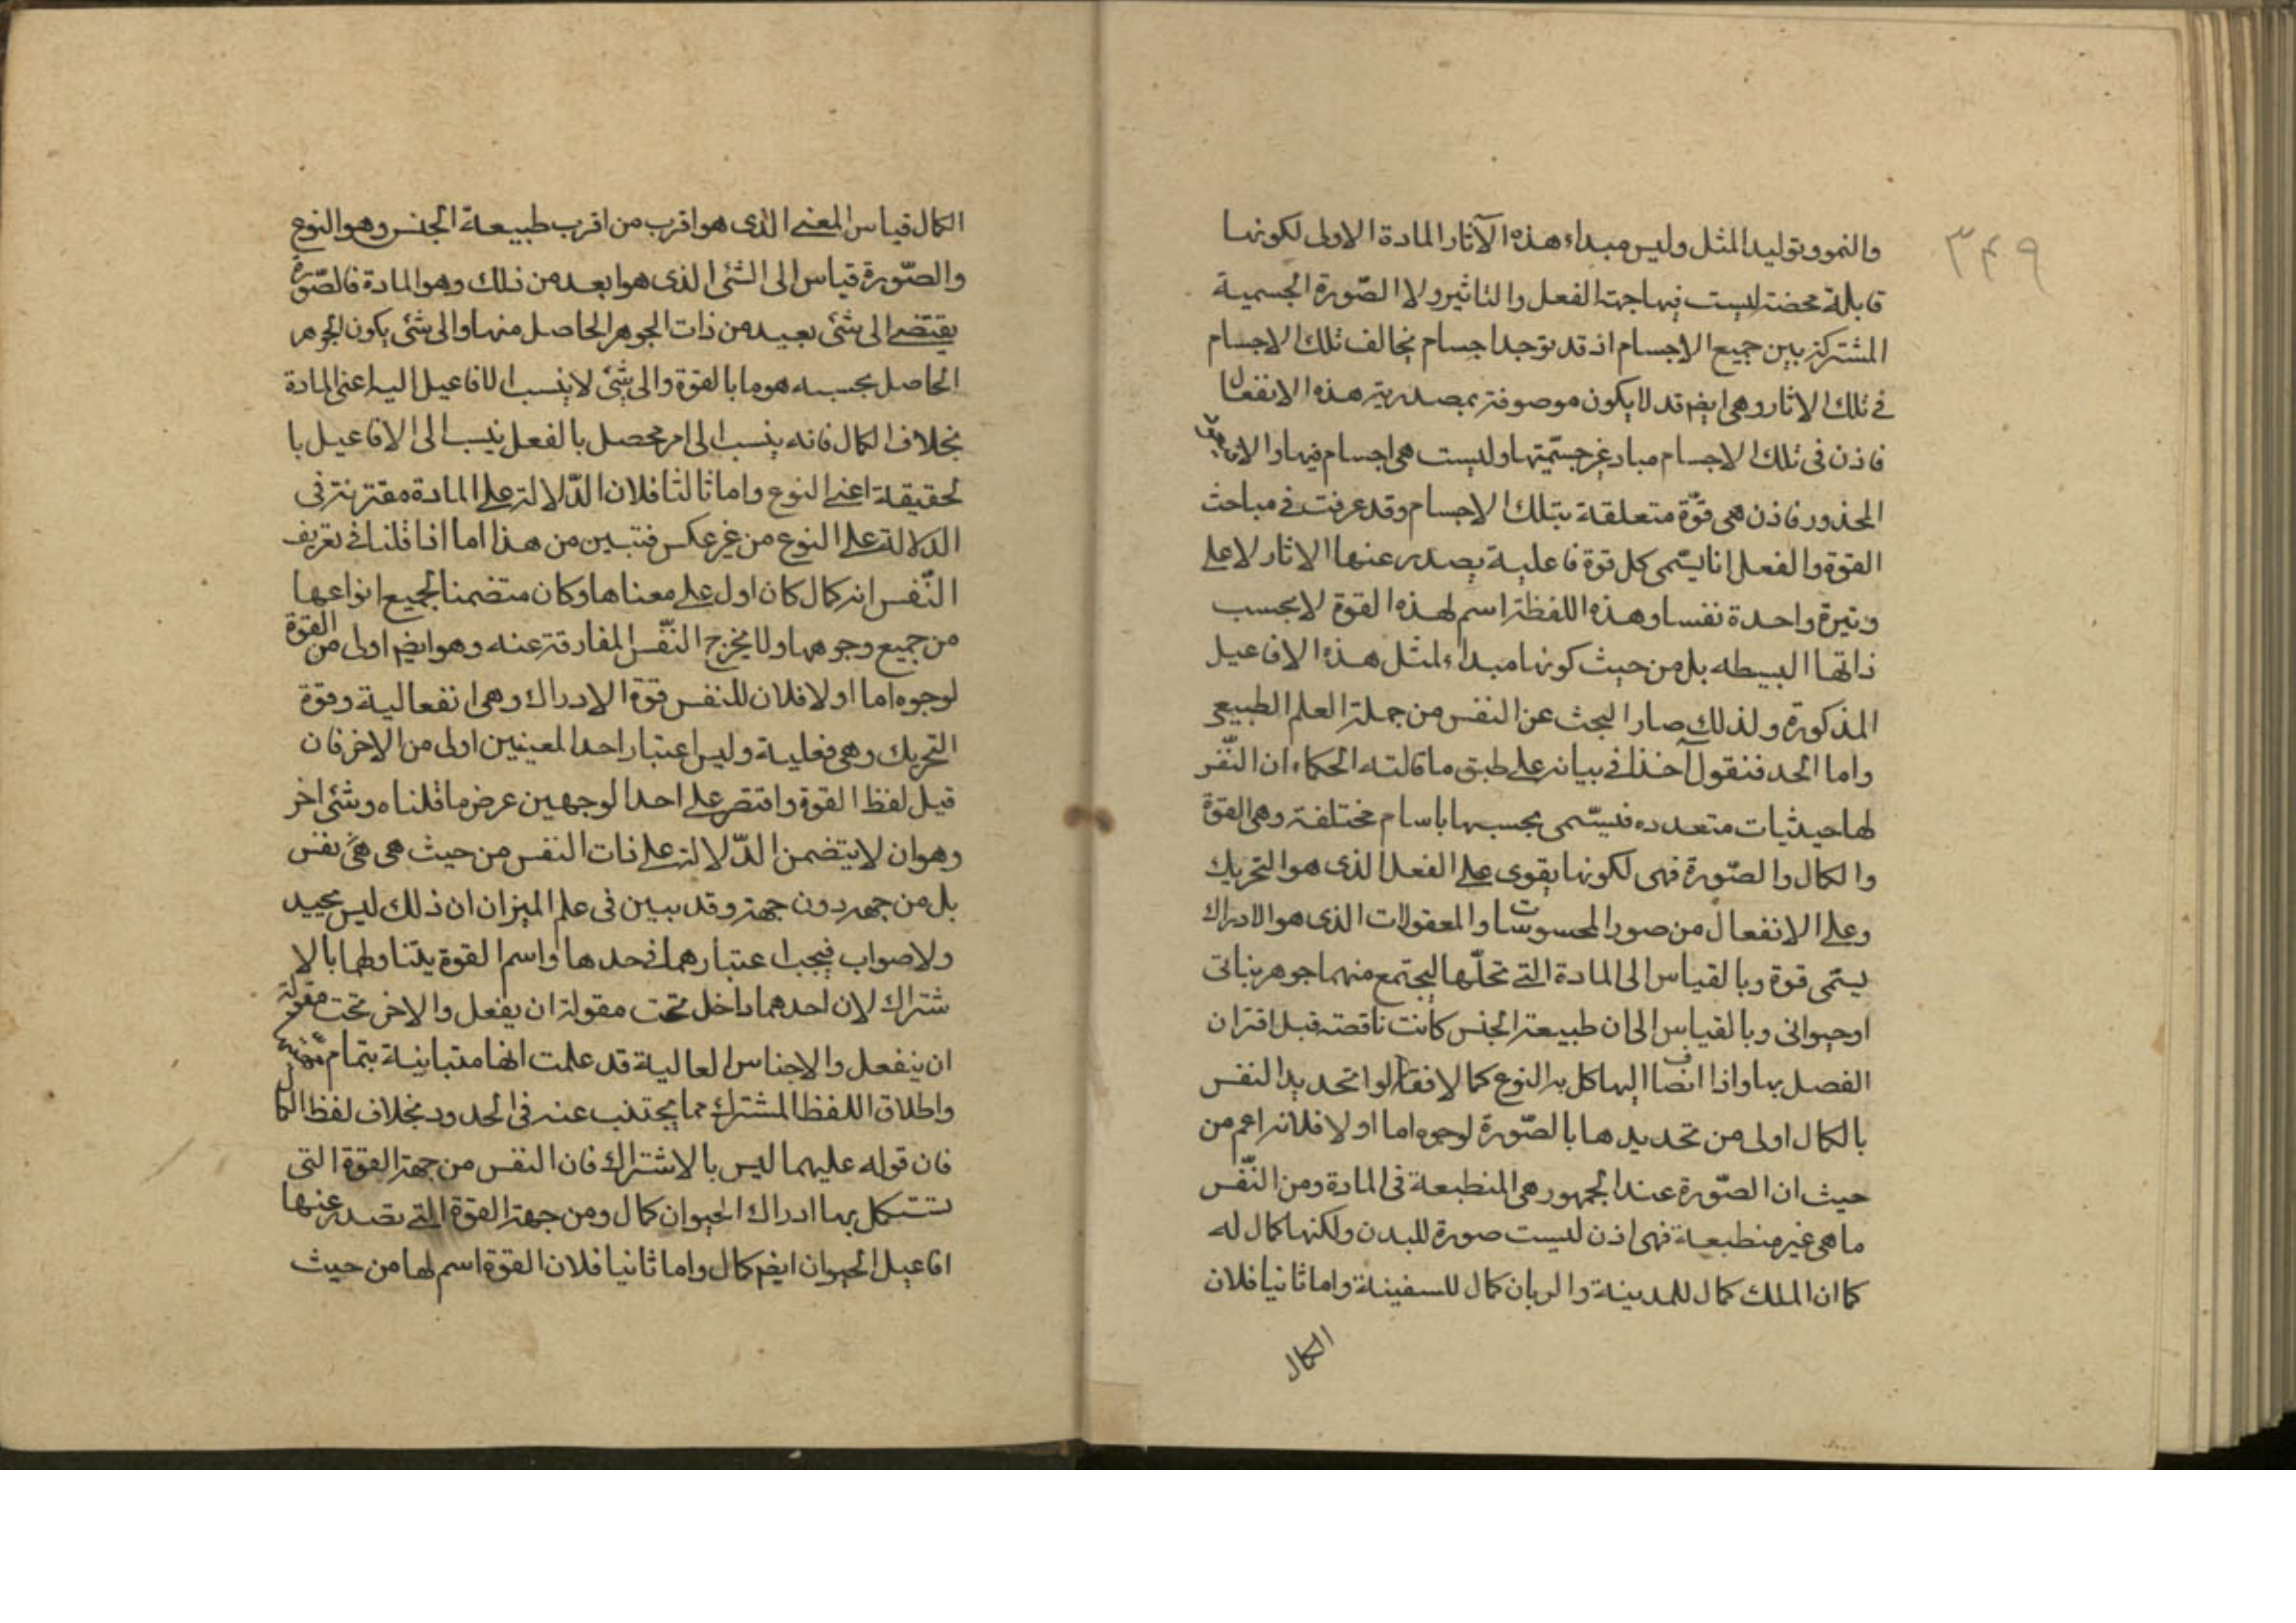 ٣٤٩
والنمو وتوليد المثل وليس مبداء هذه الآثار المادة الاولى لكونها
قابلة محضة ليست فيها جهة الفعل والتاثير ولا الصّورة الجسمية
المشتركة بين جميع الاجسام اذ قد توجد اجسام يخالف تلك الاجسام
في تلك الاثار وهي ايضم قد لا يكون موصوفة بمصدرية هذه الانفعال
فاذن في تلك الاجسام مباد غير جسّميتها وليست هي اجسام فيها والا
المحذور فاذن هي قوّة متعلقة بتلك الاجسام وقد عرفت في مباحث
القوة والفعل انا يسّمى كل قوة فاعلية يصدر عنها الاثار لا على
وتيرة واحدة نفسا وهذه اللفظة اسم لهذه القوة لا بحسب
ذاتها البسيطه بل من حيث كونها مبداء لمثل هذه الافاعيل
المذكورة ولذلك صار البحث عن النفس من جملة العلم الطبيعي
واما الحد فنقول آخذا في بيانه على طبق ما قالته الحكماء ان النّفر
لها حيثيات متعدده فيسّمى بحسبها باسام مختلفة وهي القوة
والكمال والصّورة فهي لكونها يقوى على الفعل الذي هو التحريك
وعلى الانفعال من صور المحسوسات والمعقولات الذي هو الادراك
يسّمى قوة وبالقياس الى المادة التي تحلّها ليجتمع منهما جوهر نباتي
او حيواني وبالقياس الى ان طبيعة الجنس كانت ناقصة قبل اقتران
الفصل بها واذا انضاف اليها كل به النوع كمالا فقالوا تحديد النفس
بالكمال اولى من تحديدها بالصّورة لوجوه اما اولا فلانه اعم من
حيث ان الصّورة عند الجمهور هي المنطبعة في المادة ومن النّفس
ما هي غير منطبعة فهي اذن ليست صورة للبدن ولكنها كمال له
كما ان الملك كمال للمدينة والربان كمال للسفينة واما ثانيا فلان
الكمال
الكمال قياس المعنى الذي هو اقرب من اقرب طبيعة الجنس وهو النوع
والصّورة قياس الى الشئ الذي هو ابعد من ذلك وهو المادة فالصّورة
يقتضي الى شئ بعيد من ذات الجوهر الحاصل منها والى شئ يكون الجوهر
الحاصل بحسبه هو ما بالقوة والى شئ لا ينسب الافاعيل اليه اعنى المادة
بخلاف الكمال فانه ينسب الى امر محصل بالفعل ينسب الى الافاعيل با
لحقيقة اعنى النوع واما ثالثا فلان الدّلالة على المادة مقترنة في
الدلالة على النوع من غير عكس فتبين من هذا اما انا قلنا في تعريف
النّفس انه كمال كان اول على معناها وكان متضمنا لجميع انواعها
من جميع وجوهها ولا يخرج النّفس المفارقة عنه وهو ايضم اولى من القوة
لوجوه اما اولا فلان للنفس قوة الادراك وهي انفعالية وقوة
التحريك وهي فعلية وليس اعتبار احد المعينين اولى من الاخر فان
قيل لفظ القوة واقتصر على احد الوجهين عرض ما قلناه وشئ اخر
وهو ان لا يتضمن الدّلالة على ذات النفس من حيث هي هي نفس
بل من جهة دون جهة وقد بين في علم الميزان ان ذلك ليس بجيد
ولا صواب فيجب اعتبارهما في حدها واسم القوة يتناولهما بالا
شتراك لان احدهما داخل تحت مقولة ان يفعل والاخر تحت مقولة
ان ينفعل والاجناس العالية قد علمت انها متباينة بتمام
واطلاق اللفظ المشترك مما يجتنب عنه في الحدود بخلاف لفظ الكمال
فان قوله عليهما ليس بالاشتراك فان النفس من جهة القوة التي
تستكمل بها ادراك الحيوان كمال ومن جهة القوة التي تصدر عنها
افاعيل الحيوان ايضم كمال واما ثانيا فلان القوة اسم لها من حيث